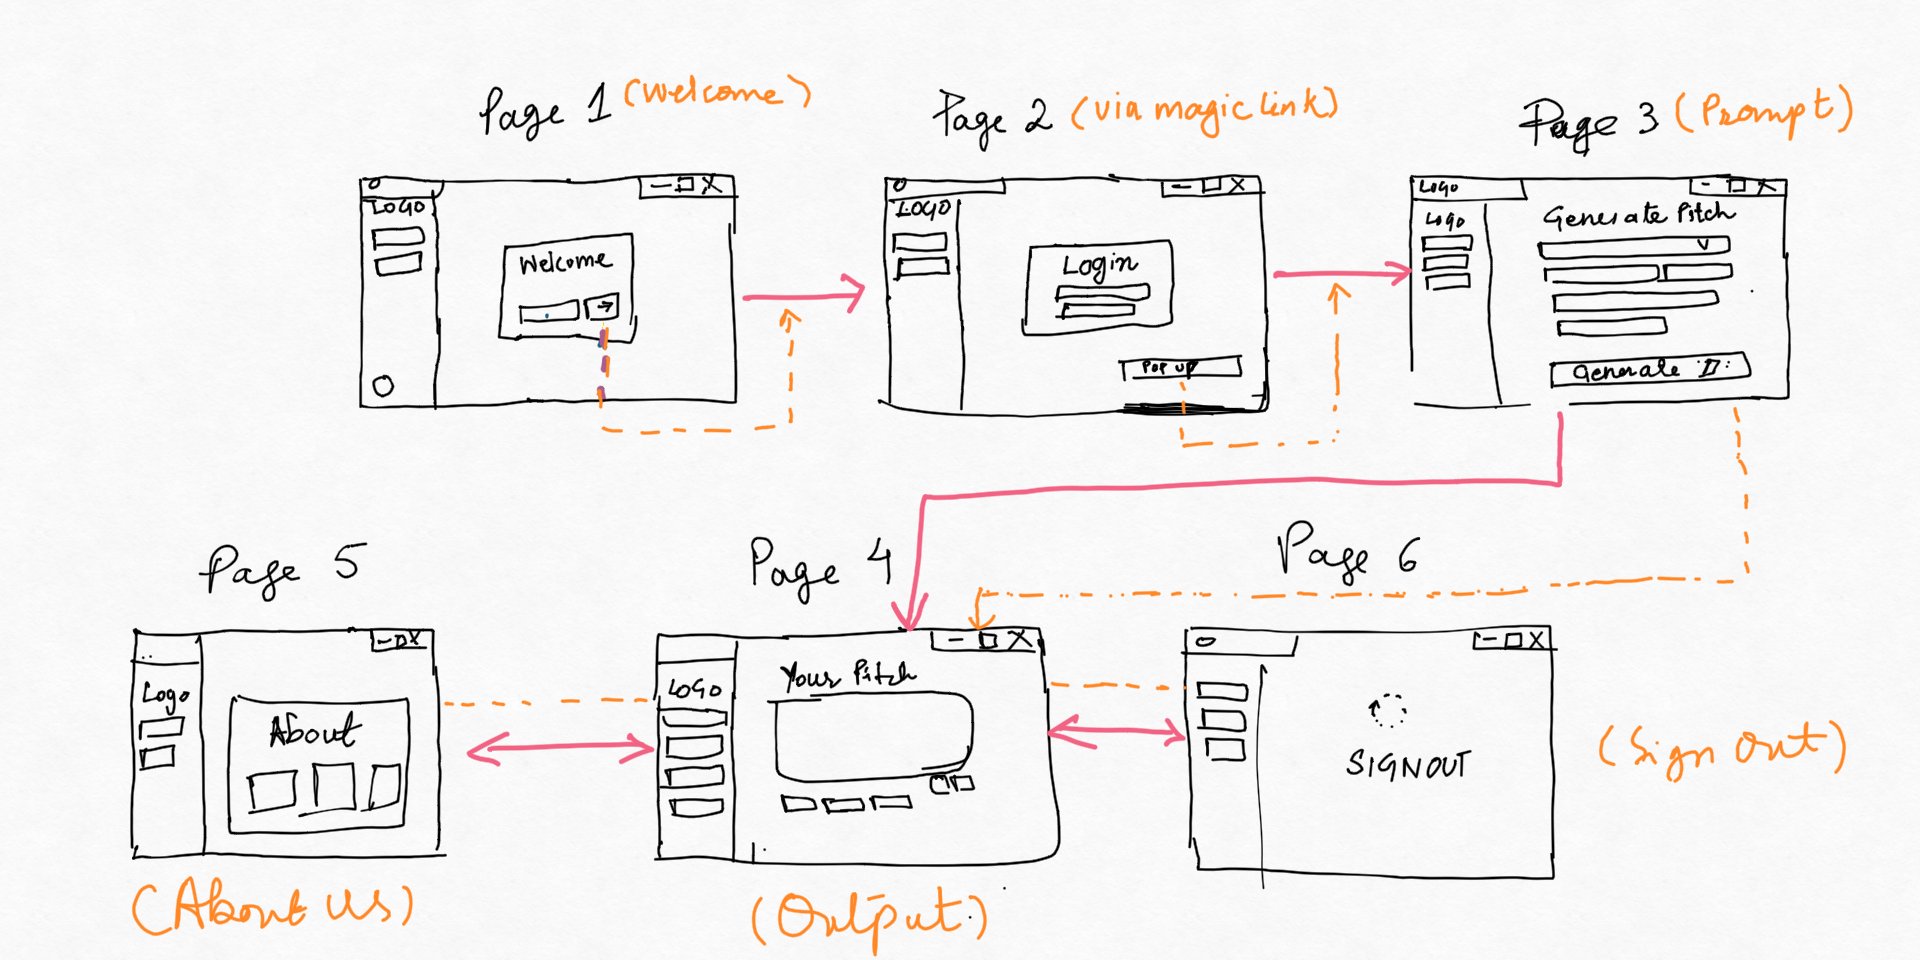 Page 1 (Welcome)
LOGO
Welcome
Page 2 (via magic link)
LOGO
Login
POP UP
Page 3 (Prompt)
LOGO
LOGO
Generate Pitch
Generate
Page 5
Logo
About
(About Us)
Page 4
LOGO
Your Pitch
(Output)
Page 6
SIGNOUT
(Sign Out)